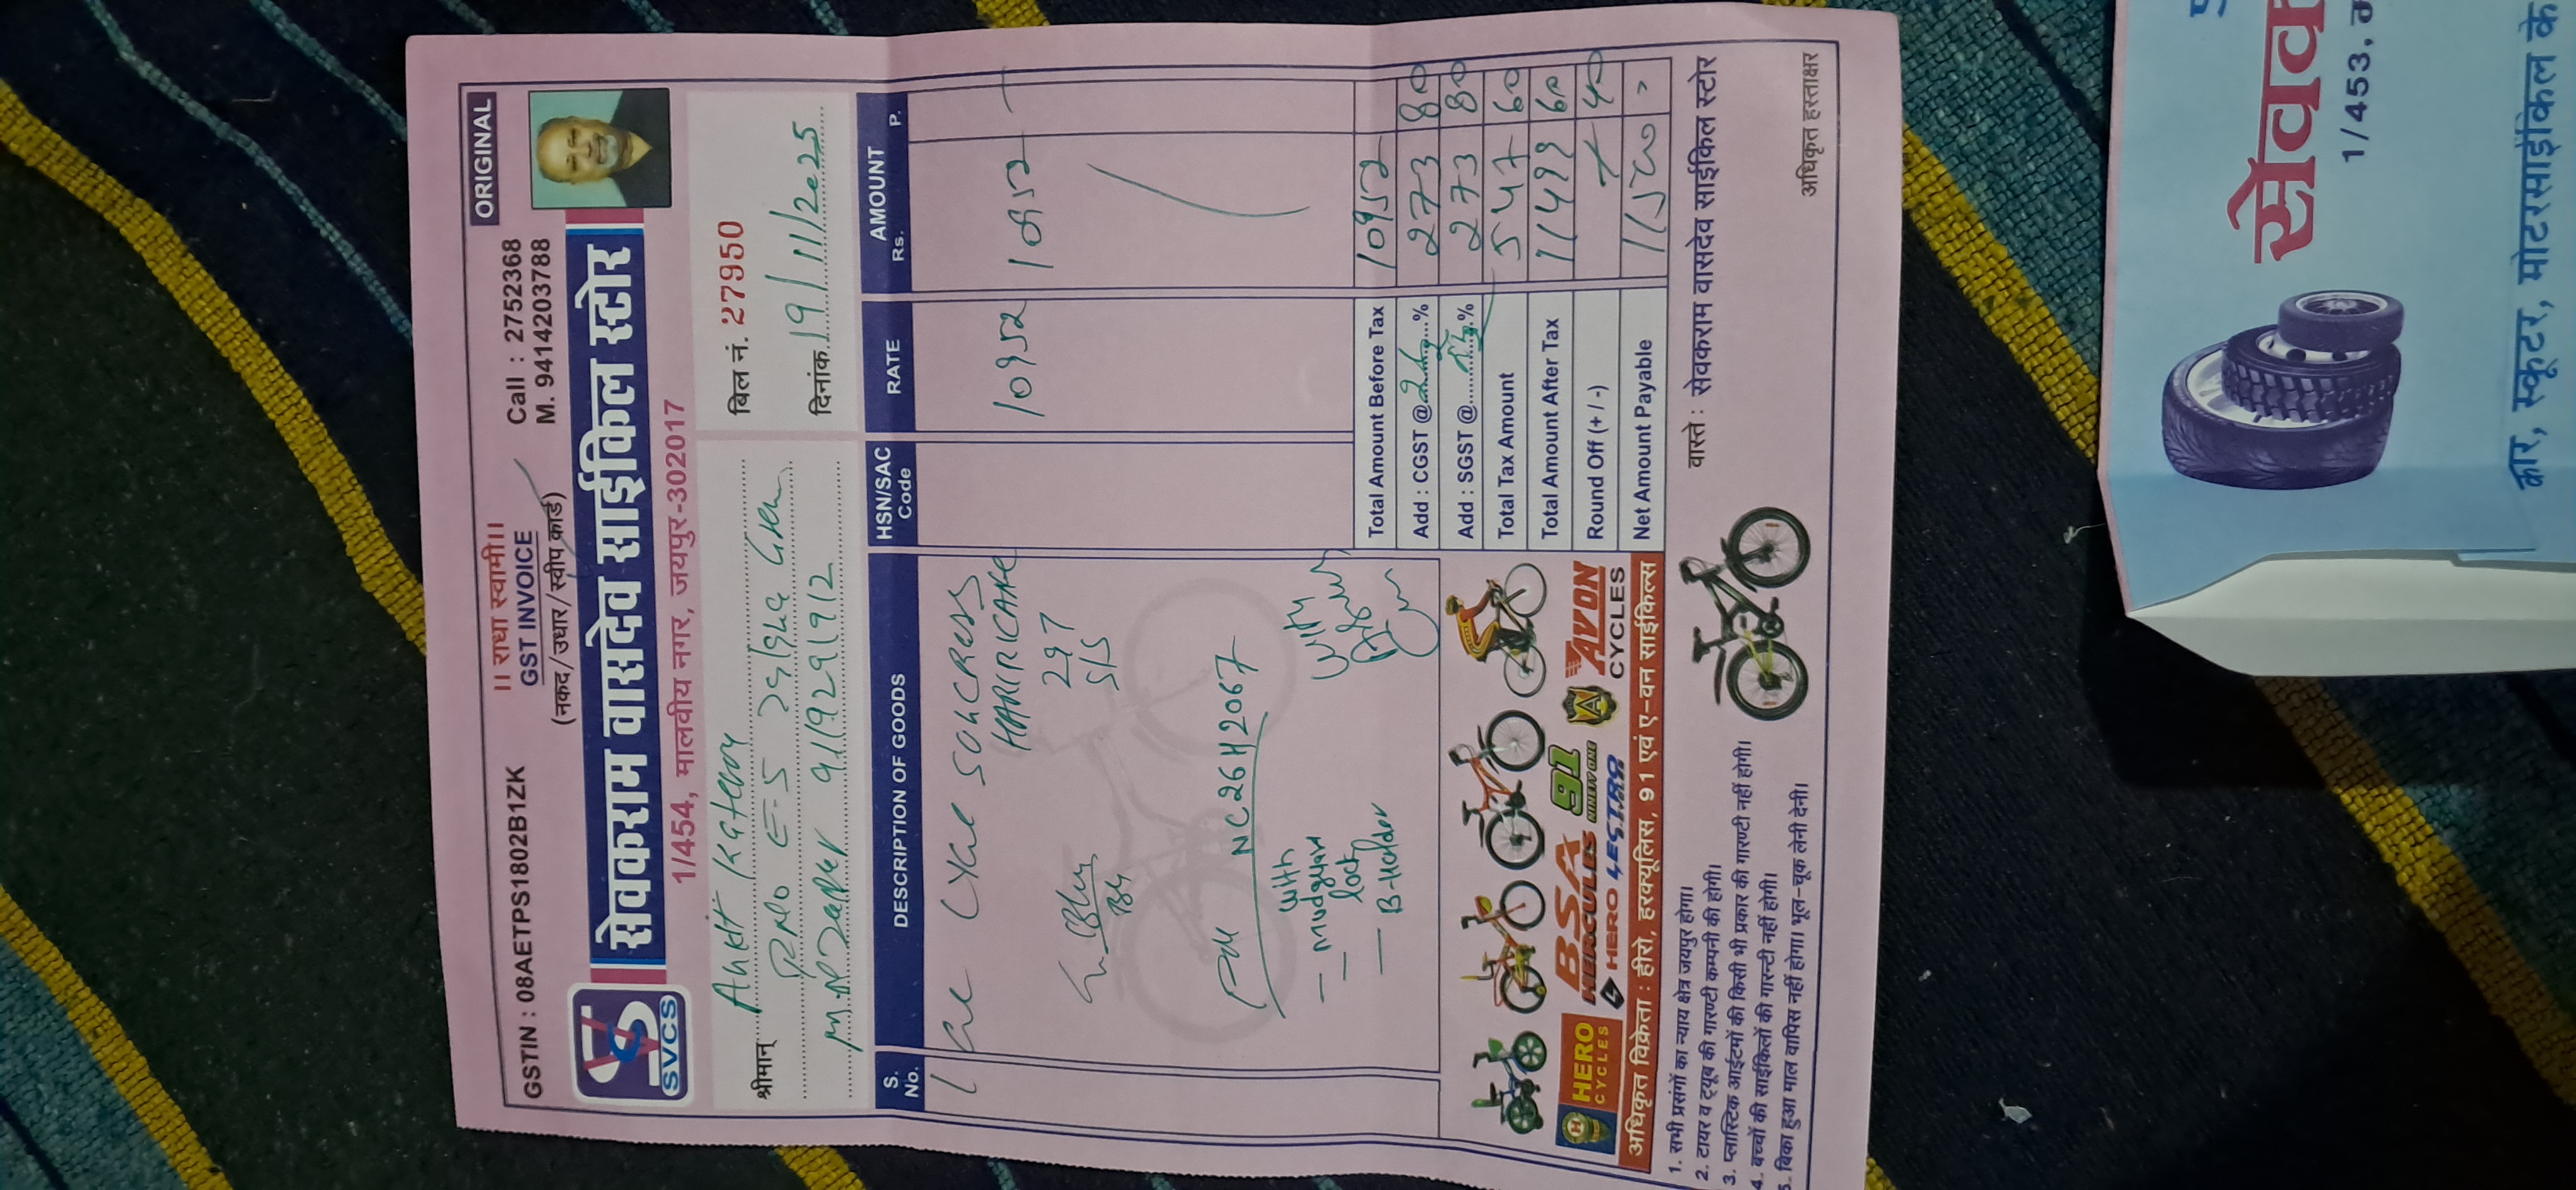 ।। राधा स्वामी।।
ORIGINAL
GSTIN : 08AETPS1802B1ZK
GST INVOICE
Call : 2752368
(नकद/उधार/स्वीप कार्ड)
M. 9414203788
SVCS
सेवकराम वासदेव साईकिल स्टोर
1/454, मालवीय नगर, जयपुर-302017
श्रीमान्
बिल नं. 27950
E-5
दिनांक. 19/11/2025
9119291912
S. No.
DESCRIPTION OF GOODS
HSN/SAC Code
RATE
AMOUNT
Rs. P.
1
10952 10952
29T
S/S
NC26H2067
with
- mudguard
- lock
- B-Holder
Total Amount Before Tax 10952
Add : CGST @ % 273 80
Add : SGST @ % 273 80
Total Tax Amount 547 60
Total Amount After Tax 11499 60
Round Off (+ / -) 40
Net Amount Payable 11500
HERO CYCLES
BSA
HERCULES
HERO LECTRO
91
NINETY ONE
AVON
CYCLES
अधिकृत विक्रेता : हीरो, हरक्यूलिस, 91 एवं ए-वन साईकिल्स
1. सभी प्रसंगों का न्याय क्षेत्र जयपुर होगा।
2. टायर व ट्यूब की गारण्टी कम्पनी की होगी।
3. प्लास्टिक आईटमों की किसी भी प्रकार की गारण्टी नहीं होगी।
4. बच्चों की साईकिलों की गारन्टी नहीं होगी।
5. बिका हुआ माल वापिस नहीं होगा। भूल-चूक लेनी देनी।
वास्ते : सेवकराम वासदेव साईकिल स्टोर
अधिकृत हस्ताक्षर
सेवक
1/453,
कार, स्कूटर, मोटरसाईकिल के